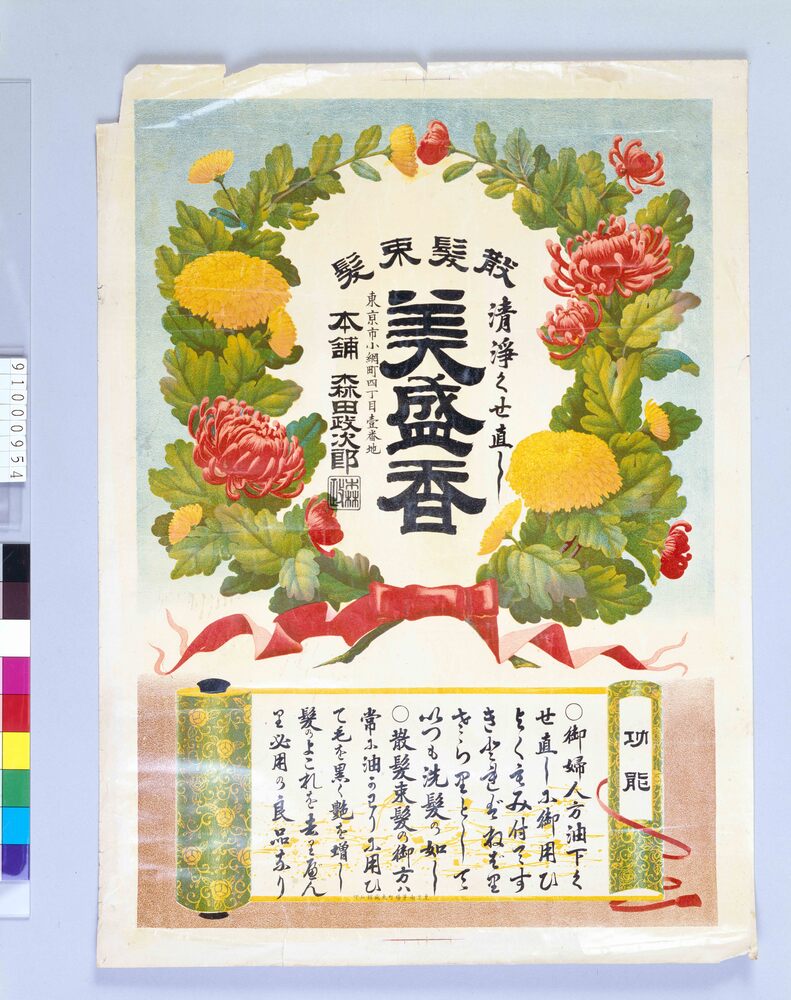 散髪束髪
清淨くせ直し
美盛香
東京市小網町四丁目壹番地
本舗 森田政次郎
森政
功能
〇御婦人方油下く
せ直しに御用ひ
よくもみ付てす
さらりとして
いつも洗髪の如し
〇散髪束髪の御方ハ
常に油かわりに用ひ
て毛を黒く艶を増し
髪のよこれを去り
必用の良品なり
91000954